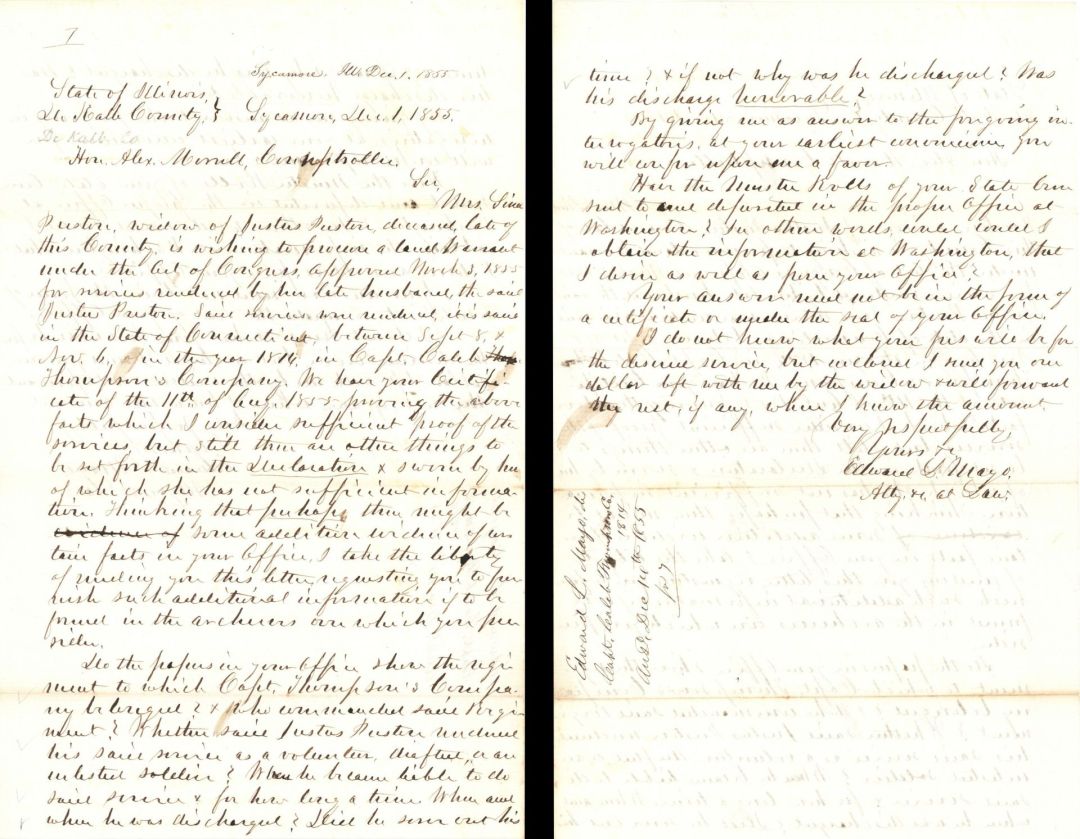 7
Sycamore, Ills Dec. 1. 1855
State of Illinois,
De Kalb County, } Sycamore, Dec. 1, 1855.
De Kalb Co
Hon. Alex. Morrill, Comptroller.
Sir,
Mrs. Lina
Preston, widow of Justus Preston, deceased, late of
this County, is wishing to procure a land Warrant
under the Act of Congress, approved March 3, 1855
for services rendered by her late husband, the said
Justus Preston. Said services were rendered, it is said
in the State of Connecticut, between Sept 8, &
Nov. 6, of in the year 1814, in Capt. Caleb
Thompson's Company. We have your Certifi-
cate of the 11th of Aug. 1855 proving the above
facts which I consider sufficient proof of the
services, but still there are other things to
be set forth in the Declaration & sworn by her
of which she has not sufficient informa-
tion. Thinking that perhaps there might be
evidence of some addition evidence of cer
tain facts in your Office, I take the liberty
of sending you this letter, requesting you to fur
nish such additional information if to be
found in the archives over which you pre
side.
Do the papers in your Office show the regi
ment to which Capt. Thompson's Compa-
ny belonged? & who commanded said Regi
ment? Whether said Justus Preston rendered
his said service as a volunteer, drafted, or an
enlisted soldier? When he became liable to do
said service & for how long a time. When and
when he was discharged? Did he serve out his
time? & if not why was he discharged? Was
his discharge honorable?
By giving me as answer to the forgoing in
terogatories, at your earliest convenience, you
will confer upon me a favor.
Have the Muster Rolls of your State been
sent to and deposited in the proper Office at
Washington? In other words, could I
obtain the information at Washington, that
I desire as well as from your Office?
Your answer need not be in the form of
a certificate or under the seal of your Office.
I do not know what your fees will be for
the desired service, but inclosed I send you one
dollar left with me by the widow & will forward
the rest, if any, when I know the amount.
Very respectfully,
Yours &c
Edward L. Mayo,
Atty. &c. at Law.
Edward L. Mayo,
Capt. Caleb Thompson's Co.
1814
Ansd. Dec 14th 1855